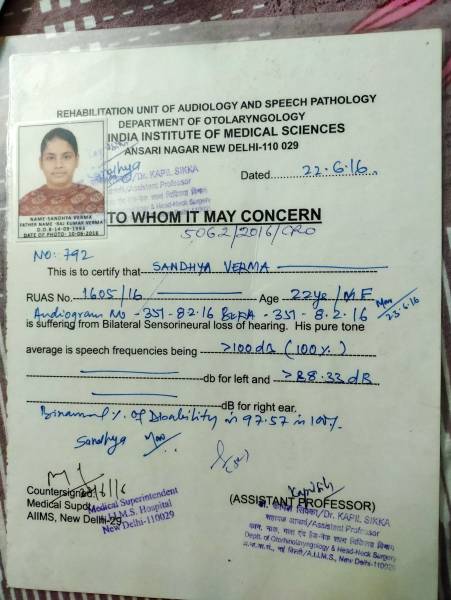 REHABILITATION UNIT OF AUDIOLOGY AND SPEECH PATHOLOGY
DEPARTMENT OF OTOLARYNGOLOGY
INDIA INSTITUTE OF MEDICAL SCIENCES
ANSARI NAGAR NEW DELHI-110 029
Sandhya
Dr. KAPIL SIKKA
Assistant Professor
& Head-Neck Surgery
Dated 22.6.16
NAME-SANDHYA VERMA
FATHER NAME-RAJ KUMAR VERMA
D.O.B-14-09-1993
DATE OF PHOTO- 10-06-2016
TO WHOM IT MAY CONCERN
5062/2016/CRO
NO: 792
This is to certify that SANDHYA VERMA
RUAS No. 1605/16 Age 22ys / M F
23.6.16
Audiogram No - 351 - 8.2.16 BERA - 351 - 8.2.16
is suffering from Bilateral Sensorineural loss of hearing. His pure tone
average is speech frequencies being >100 dB (100%)
db for left and >88.33 dB
dB for right ear.
Binaural % of Disability is 97.57 in 100%
Sandhya
Countersigned
Medical Supdt
AIIMS, New Delhi-29
Medical Superintendent
A.I.I.M.S. Hospital
New Delhi-110029
(ASSISTANT PROFESSOR)
डा. कपिल सिक्का/Dr. KAPIL SIKKA
सहायक आचार्य/Assistant Professor
Deptt. of Otorhinolaryngology & Head-Neck Surgery
अ.भा.आ.सं., नई दिल्ली/A.I.I.M.S., New Delhi-110029